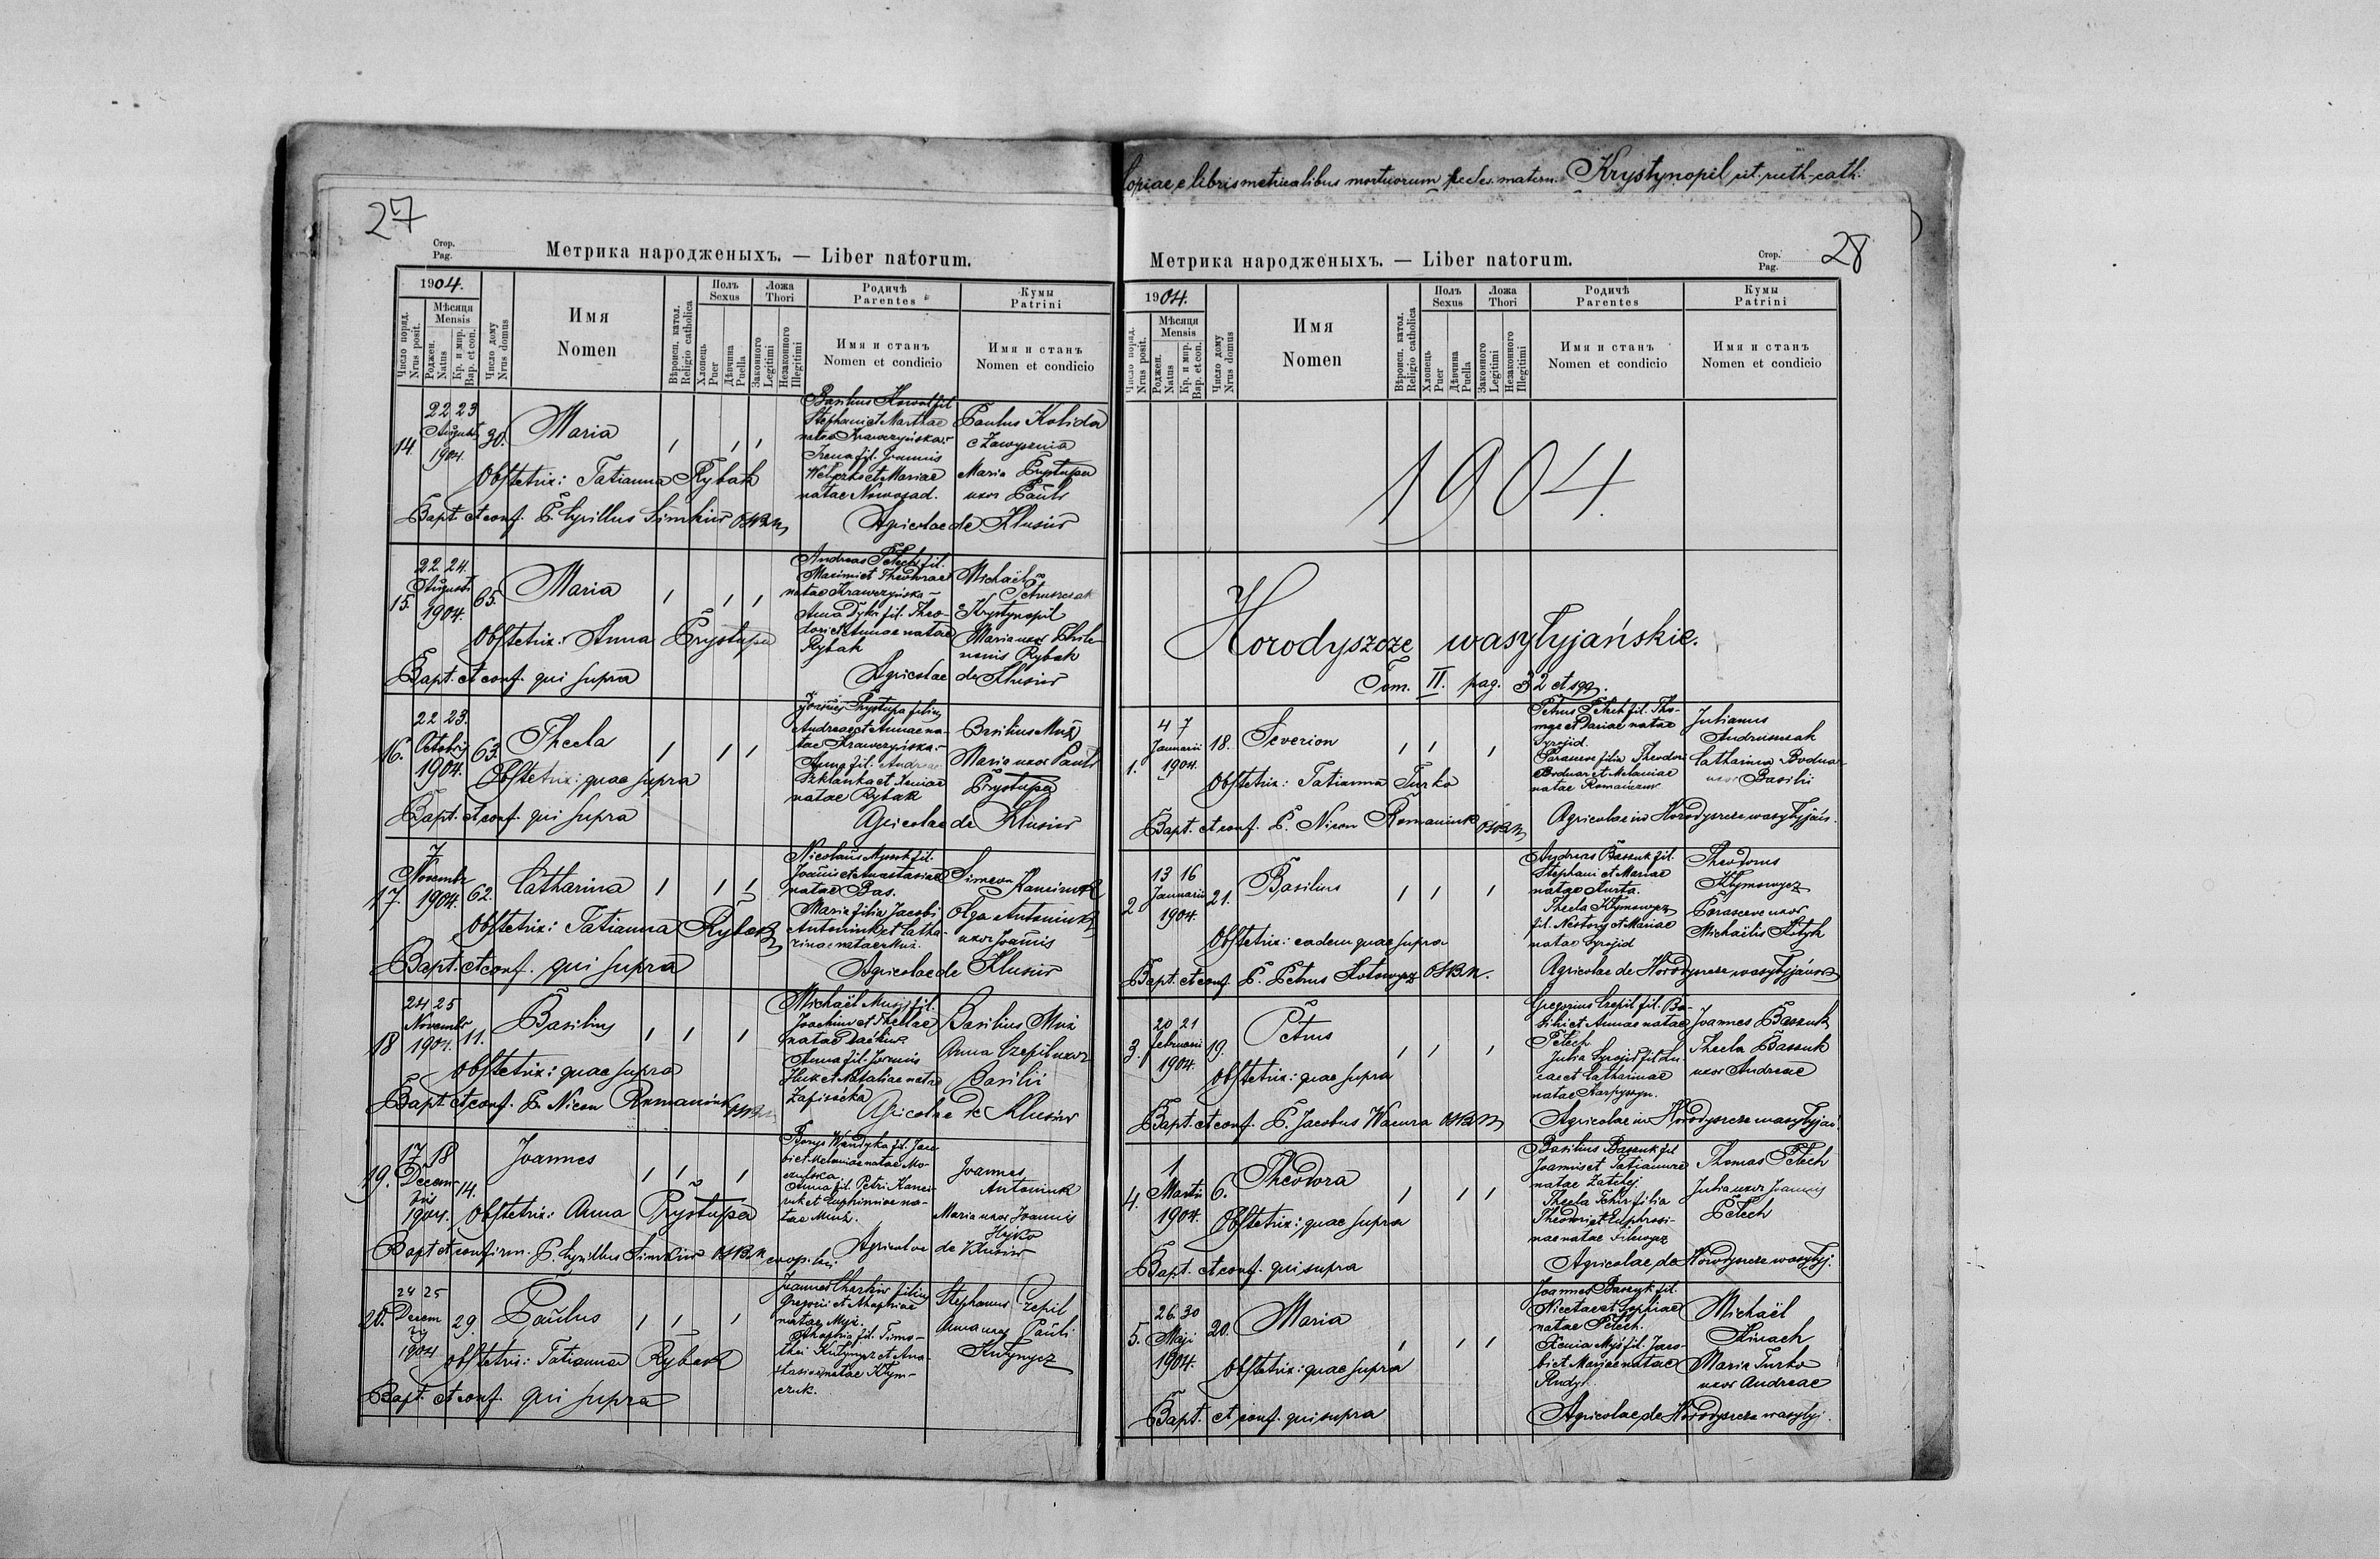 Copiae e libris metricalibus mortuorum eccles. matern. Krystynopil rit. ruth.-cath.
27
Стор.
Pag.
Метрика народженыхъ. — Liber natorum.
1904.
Число поряд.
Nrus posit.
Мѣсяця
Mensis
Роджен.
Natus
Кр. и мир.
Bap. et con.
Число дому
Nrus domus
Имя
Nomen
Вѣроисп. катол.
Religio catholica
Полъ
Sexus
Хлопець
Puer
Дѣвчина
Puella
Ложа
Thori
Законного
Legitimi
Незаконного
Illegitimi
Родичѣ
Parentes
Имя и станъ
Nomen et condicio
Кумы
Patrini
Имя и станъ
Nomen et condicio
14. 22 23 Augusti 1904. 30. Maria
Obstetrix: Tatianna Rybak
Bapt. et conf. P. Cyrillus Simkiw OSBM
Basilius Kowal fil.
Stephani et Marthae
natae Krawczyńska
Irena fil. Joannis
et Mariae
natae Nowosad.
Agricolae de Klusiw
Paulus Kolida
e Zawysznia
Maria Prystupa
uxor Pauli
15. 22 24. Augusti 1904. 65. Maria
Obstetrix: Anna Prystupa
Bapt. et conf. qui supra
Andreas Petech fil.
Maximi et Theodorae
natae Krawczyńska
Anna Dyki fil. Theo-
dori et Annae natae
Rybak
Agricolae de Klusiw
Michaël
Petruszczak
e Krystynopil
Maria uxor
Rybak
16. 22 23. Octobris 1904. 63. Thecla
Obstetrix: quae supra
Bapt. et conf. qui supra
Joannes Prystupa filius
Andreae et Annae na-
tae Krawczyńska
Anna fil. Andreae
Szklanka et Xeniae
natae Rybak
Agricolae de Klusiw
Basilius Muż
Maria uxor Pauli
Prystupa
17. 7 Novembr 1904. 62. Catharina
Obstetrix: Tatianna Rybak
Bapt. et conf. qui supra
Nicolaus fil.
Joannis et Anastasiae
natae Bas.
Maria filia Jacobi
Antoniuk et Catha-
rinae natae Muż.
Agricolae de Klusiw
Simeon Kanciuruk
Olga Antoniuk
uxor Joannis
18 24 25 Novembr 1904. 11. Basilius
Obstetrix: quae supra
Bapt. et conf. P. Nicon Romaniuk OSBM
Michaël fil.
Joachim et Theclae
natae
Anna fil. Joannis
Huk et Nataliae natae
Zapisocka
Agricolae de Klusiw
Basilius Muż
Anna Czepil uxor
Basilii
19. 17 18 Decembris 1904. 14. Joannes
Obstetrix: Anna Prystupa
Bapt. et confirm. P. Cyrillus Simkiw OSBM coop.
fil. Jaco-
bi et Melaniae natae
Anna fil. Petri
et Euphimiae na-
tae Muż.
Agricolae de Klusiw
Joannes
Antoniuk
Maria uxor Joannis
Hyjko
20. 24 25 Decembris 1904 29. Paulus
Obstetrix: Tatianna Rybak
Bapt. et conf. qui supra
Joannes Charkiw filius
Gregorii et Ahaphiae
natae
Ahaphia fil. Timo-
thei Kutynycz et Ana-
stasiae natae Klym-
czuk.
Stephanus Czepil
Anna uxor Pauli
Kutynycz
28
Стор.
Pag.
Метрика народженыхъ. — Liber natorum.
1904.
Число поряд.
Nrus posit.
Мѣсяця
Mensis
Роджен.
Natus
Кр. и мир.
Bap. et con.
Число дому
Nrus domus
Имя
Nomen
Вѣроисп. катол.
Religio catholica
Полъ
Sexus
Хлопець
Puer
Дѣвчина
Puella
Ложа
Thori
Законного
Legitimi
Незаконного
Illegitimi
Родичѣ
Parentes
Имя и станъ
Nomen et condicio
Кумы
Patrini
Имя и станъ
Nomen et condicio
1904.
Horodyszcze wasylyjańskie.
Tom. II. pag. 32 et sqq.
1. 4 7 Januarii 1904. 18. Severion
Obstetrix: Tatianna Turko
Bapt. et conf. P. Nicon Romaniuk OSBM
Petrus Petech fil. Tho-
mae et Dariae natae
Syrojid.
Parasceve filia Theodori
Bodnar et Melaniae
natae
Agricolae in Horodyszcze wasylyjań.
Julianus
Andruszczak
Catharina Bodnar
uxor Basilii
2. 13 16 Januarii 1904. 21. Basilius
Obstetrix: eadem quae supra
Bapt. et conf. P. Petrus Kotowycz OSBM.
Andreas Baszuk fil.
Stephani et Mariae
natae Kurta.
Thecla Klymowycz
fil. Nestoris et Mariae
natae Syrojid
Agricolae de Horodyszcze wasylyjańs
Theodorus
Klymowycz
Parasceve uxor
Michaëlis
3. 20 21 februarii 1904. 19. Petrus
Obstetrix: quae supra
Bapt. et conf. P. Jacobus Wacura OSBM
Gregorius Czepil fil. Ba-
silii et Annae natae
Petech
Julia Syrojid fil. Lu-
cae et Catharinae
natae Karpyszyn.
Agricolae in Horodyszcze wasylyjań.
Joannes Baszuk
Thecla Baszuk
uxor Andreae
4. 1 Martii 1904. 6. Theodora
Obstetrix: quae supra
Bapt. et conf. qui supra
Basilius Baszuk fil.
Joannis et Tatiannae
natae
Thecla filia
Theodori et Euphrosi-
nae natae Filewycz
Agricolae de Horodyszcze wasylyj.
Thomas Petech
Julia uxor Joannis
Petech
5. 26. 30 Maji 1904. 20. Maria
Obstetrix: quae supra
Bapt. et conf. qui supra
Joannes fil.
Nicetae et Sophiae
natae Petech.
Xenia fil. Jaco-
bi et Mariae natae
Rudyj.
Agricolae de Horodyszcze wasylyj.
Michaël
Kinach
Maria Turko
uxor Andreae